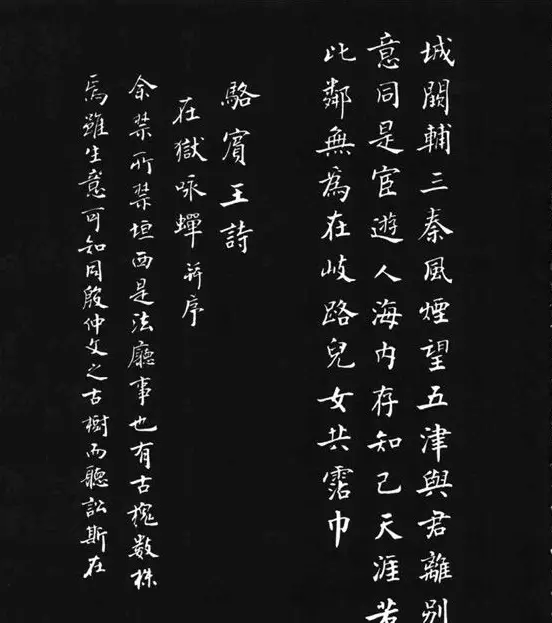 城闕輔三秦風煙望五津與君離別
意同是宦遊人海內存知己天涯若
比鄰無為在岐路兒女共霑巾
駱賓王詩
在獄咏蟬 并序
余禁所禁垣西是法廳事也有古槐數株
焉雖生意可知同殷仲文之古樹而聽訟斯在